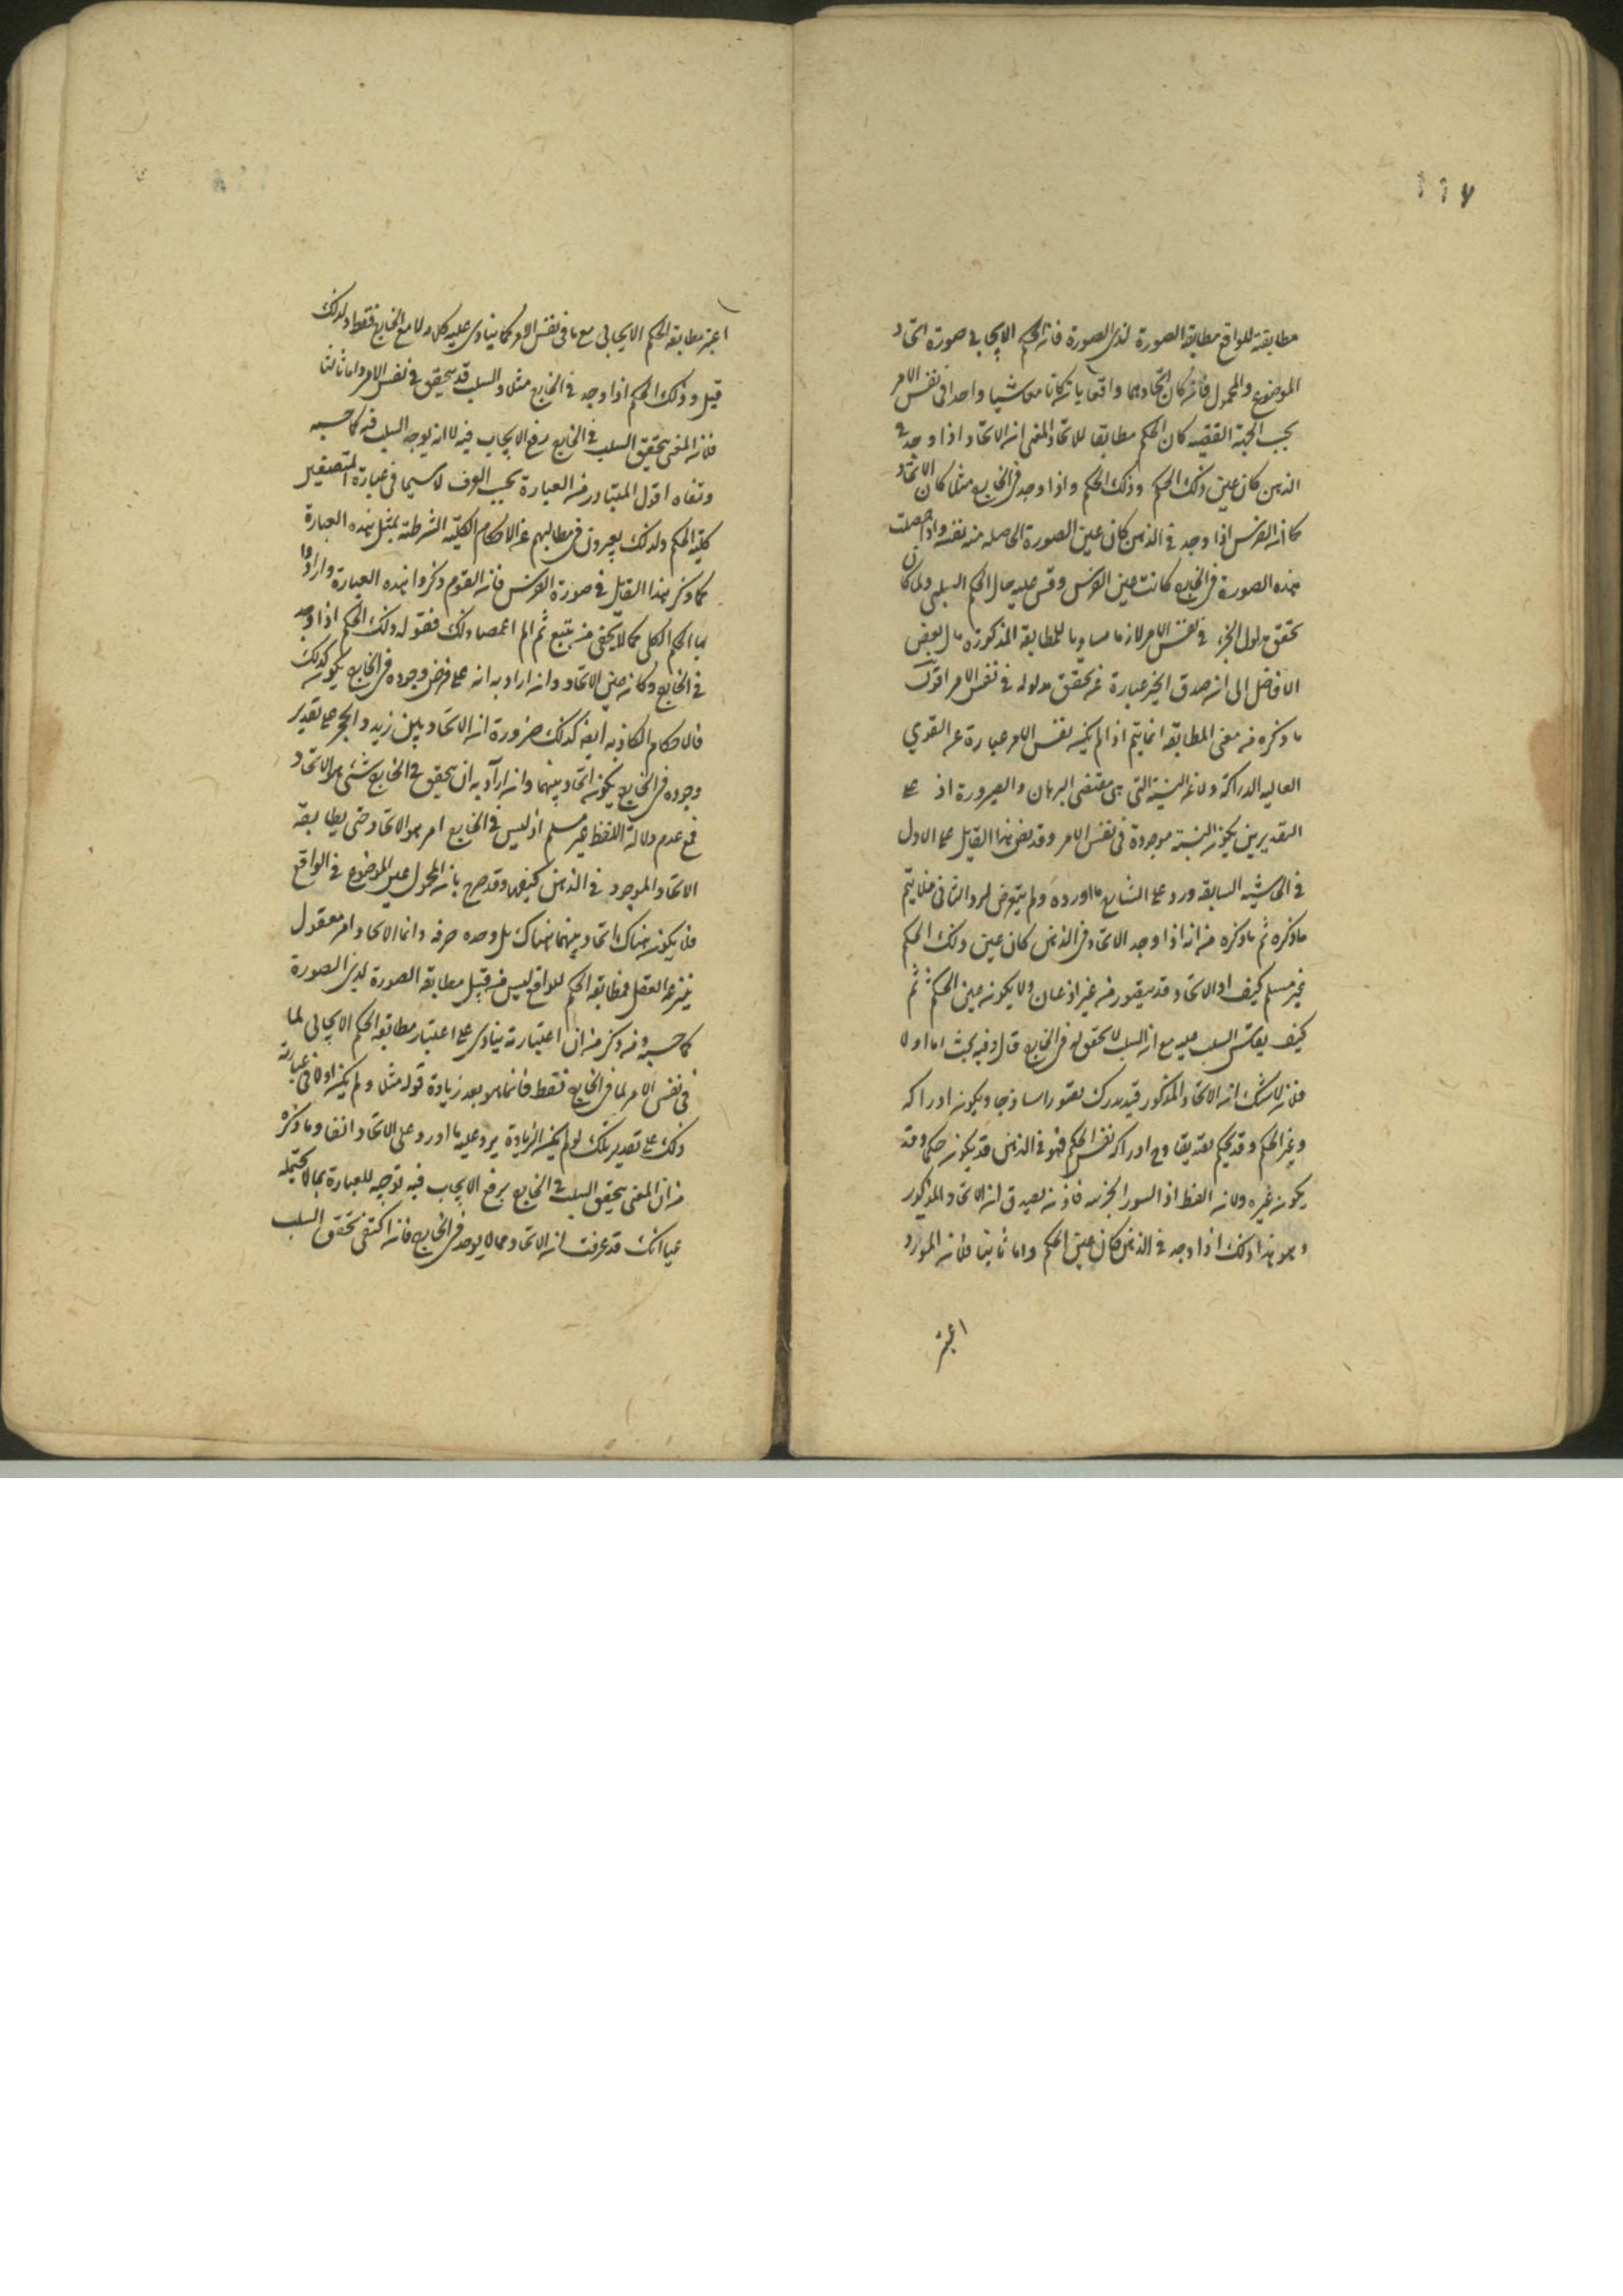 ١١٧
مطابقته للواقع مطابقة الصورة لذى الصورة فان الحكم الايجابى صورة اتحاد
الموضوع والمحمول فان كان اتحادهما واقعا بان كانا معا شيا واحدا فى نفس الامر
بحسب الجهة القضيه كان الحكم مطابقا للاتحاد المعنى ان الاتحاد اذا وجد فى
الذهن كان عين ذلك الحكم وذلك الحكم واذا وجد فى الخارج مثلا كان الاتحاد
كما ان الفرس اذا وجد فى الذهن كان عين الصورة الحاصله منه نفسه واذا حصلت
هذه الصورة فى الخارج كانت عين الفرس وقس عليه حال الحكم السلبى ولما كان
تحقق مدلول الخبر فى نفس الامر لازما مساويا للمطابقة المذكورة مال بعض
الافاضل الى ان صدق الخبر عبارة عن تحقق مدلوله فى نفس الامر اقول
ما ذكره من معنى المطابقة انما يتم اذا لم يكن نفس الامر عبارة عن القوى
العاليه الدراكة ولا عن النسبة التى هى مقتضى البرهان والضرورة اذ على
التقديرين يكون النسبة موجودة فى نفس الامر وقد نص هذا القايل على الاول
فى الحاشيه السابقه ورد على الشارح ما اورده ولم يتعرض لرد الثانى فلا يتم
ما ذكره ثم ما ذكره من انه اذا وجد الاتحاد فى الذهن كان عين ذلك الحكم
غير مسلم كيف اذ الاتحاد قد يتصور من غير اذعان ولا يكون عين الحكم ثم
كيف يقاس السلب عليه مع ان السلب لا تحقق له فى الخارج قال وفيه بحث اما اولا
فلانه لا شك ان الاتحاد المذكور قد يدرك تصورا ساذجا ويكون ادراكه
وغير الحكم وقد يحكم تصديقا و ح ادراكه نفس الحكم فهو فى الذهن قد يكون حكما وقد
يكون غيره ولانه لفظ اذا السور الجزئيه فاذن يصدق ان الاتحاد المذكور
وهو هذا ذلك اذا وجد فى الذهن كان عين الحكم واما ثانيا فلان المورد
اعتبر
اعتبر مطابقة الحكم الايجابى مع ما فى نفس الامر كما ينادى عليه كلامه لا مع الخارج فقط ولذلك
قيل وذلك الحكم اذا وجد فى الخارج مثلا والسلب قد يتحقق فى نفس الامر واما ثالثا
فلان المعنى بتحقق السلب فى الخارج رفع الايجاب فيه لا انه يوجد السلب فيه كما حسبه
ونفاه اقول المتبادر من العبارة بحسب العرف لا سيما فى عبارة المصنفين
كلية الحكم ولذلك يعبرون فى مطالبهم عن الاحكام الكلية الشرطية بمثل هذه العبارة
كما ذكر هذا القايل فى صورة الفرس فان القوم ذكروا هذه العبارة وارادوا
بها الحكم الكلى كما لا يخفى من تتبع ثم لم اغمضنا ذلك فقوله ذلك الحكم اذا وجد
فى الخارج وكان عين الاتحاد وان اراد به انه على فرض وجوده فى الخارج يكون كذلك
فالاحكام الكاذبه ايضا كذلك ضرورة ان الاتحاد بين زيد والحجر على تقدير
وجوده فى الخارج يكون اتحاد بينهما وان اراد به ان يتحقق فى الخارج شىء هو الاتحاد
فمع عدم دلالة اللفظ غير مسلم اذ ليس فى الخارج امر هو الاتحاد حتى يطابقه
الاتحاد الموجود فى الذهن كيف وقد صرح بان المحمول عين الموضوع فى الواقع
فلا يكون هناك اتحاد بينهما هناك بل وحده صرفه وانما الاتحاد امر معقول
ينتزعه العقل فمطابقة الحكم للواقع ليس من قبيل مطابقة الصورة لذى الصورة
كما حسبه وما ذكر من ان اعتباره ينادى على اعتبار مطابقة الحكم الايجابى لما
فى نفس الامر لما فى الخارج فقط فانما هو بعد زيادة قوله مثلا ولم يكن اولا فى عبارته
ذلك على تقدير تلك لو لم يكن الزيادة يرد عليه ما اورد على الاتحاد انفا وما ذكره
من ان المعنى بتحقق السلب فى الخارج برفع الايجاب فيه توجيه للعبارة بما لا يحتمله
على انك قد عرفت ان الاتحاد مما لا يوجد فى الخارج فان اكتفى بتحقق السلب